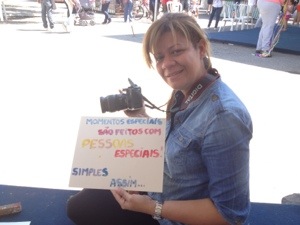 MOMENTOS ESPECIAIS
SÃO FEITOS COM
PESSOAS
ESPECIAIS!
SIMPLES
ASSIM...